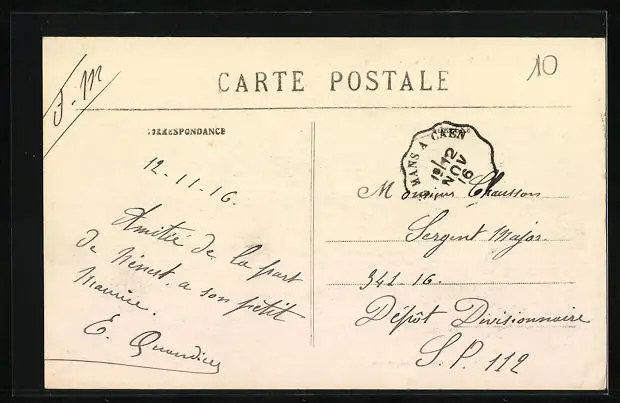 F. M
10
CARTE POSTALE
CORRESPONDANCE
MANS A CAEN
12
NOV
16
12-11-16.
Amitié de la part
de Nénest, a son petit
Maurice.
E.
Monsieur Chausson
Sergent Major
342-16.
Dépôt Divisionnaire
S.P. 112